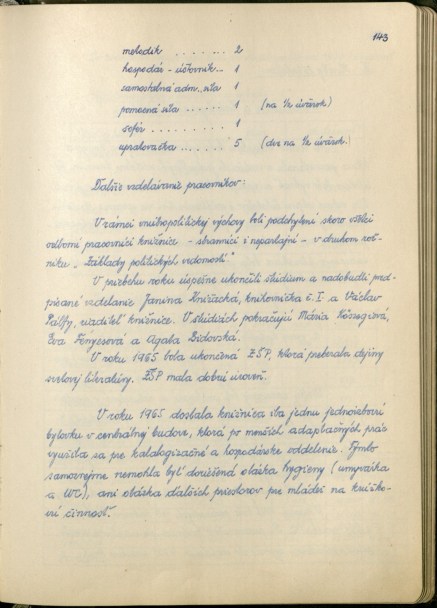 143
metodik ....... 2
hospodár - účtovník .. 1
samostatná adm. sila 1
pomocná sila ..... 1 (na ½ úväzok)
šofér ......... 1
upratovačka ...... 5 (dve na ½ úväzok.)
Ďalšie vzdelávanie pracovníkov:
V rámci vnútropolitickej výchovy boli podchytení skoro všetci
odborní pracovníci knižnice - straníci i nepartajní - v druhom roč-
níku „Základy politických vedomostí."
V priebehu roku úspešne ukončili štúdium a nadobudli pred-
písané vzdelanie Janina knihovníčka č. I a Václav
Pálffy, riaditeľ knižnice. V štúdiách pokračujú Mária Kőszegiová,
Eva Fényesová a Agáta Didovská.
V roku 1965 bola ukončená ZŠP, ktorá preberala dejiny
svetovej literatúry. ZŠP mala dobrú úroveň.
V roku 1965 dostala knižnica iba jednu jednoizbovú
bytovku v centrálnej budove, ktorá po menších adaptačných prác
využíva sa pre katalogizačné a hospodárske oddelenie. Týmto
samozrejme nemohla byť doriešená otázka hygieny (umyvárka
a WC), ani otázka ďalších priestorov pre mládež na krúžko-
vú činnosť.